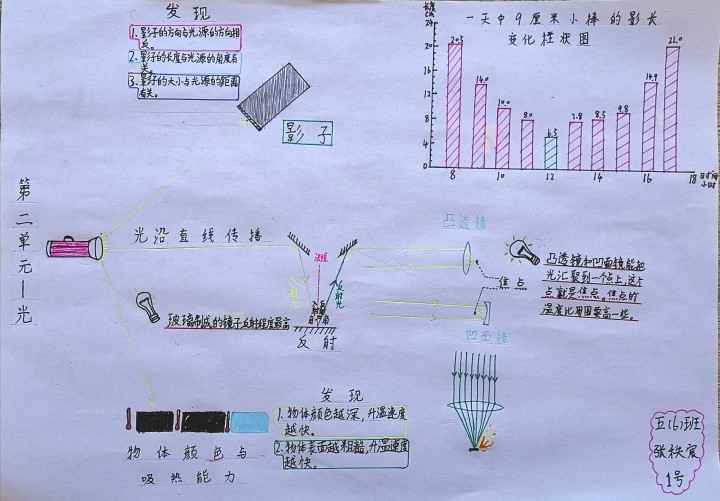 发现
1.影子的方向与光源的方向相
反。
2.影子的长度与光源的角度有
关。
3.影子的大小与光源的距离
有关。
影子
一天中9厘米小棒的影长
变化柱状图
24
20
16
12
8
4
0
20.5
14.0
10.0
8.0
6.5
7.8
8.5
9.8
14.9
21.0
8
10
12
14
16
18
时间
小时
第二单元—光
光沿直线传播
法线
反射光
反射
玻璃制成的镜子反射程度最高
凸透镜
焦点
凹面镜
凸透镜和凹面镜能把
光汇聚到一个点上,这个
点就是焦点。焦点的
温度比周围要高一些。
发现
1.物体颜色越深,升温速度
越快。
2.物体表面越粗糙,升温速度
越快。
物体颜色与
吸热能力
五(6)班
张秩宸
1号